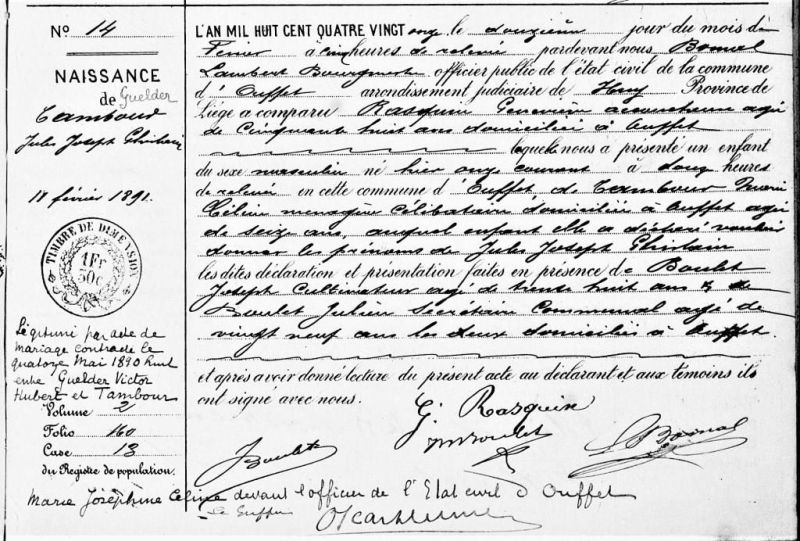 No 14
NAISSANCE
de Guelder
Tambour
Jules Joseph Ghislain
11 février 1891.
TIMBRE DE DIMENSION
1 Fr
50 C
Légitimé par acte de
mariage contracté le
quatorze Mai 1890 huit
entre Guelder Victor
Hubert et Tambour
Volume 2
Folio 160
Case 13
du Registre de population.
Marie Joséphine Céline devant l'officier de l'Etat civil d'Ouffet
Le Greffier
L'AN MIL HUIT CENT QUATRE VINGT onze le douzième jour du mois de
Février à cinq heures de relevée pardevant nous Bonnal
Lambert officier public de l'état civil de la commune
d'Ouffet arrondissement judiciaire de Huy Province de
Liège a comparu Rasquin Geneviève accoucheuse agée
de cinquante huit ans domiciliée à Ouffet
laquelle nous a présenté un enfant
du sexe masculin né hier onze courant à douze heures
de relevée en cette commune d'Ouffet de Tambour Marie
Céline ménagère célibataire domiciliée à Ouffet agée
de seize ans, auquel enfant elle a déclaré vouloir
donner les prénoms de Jules Joseph Ghislain
les dites déclaration et présentation faites en présence de Boulet
Joseph Cultivateur agé de trente huit ans & de
Boulet Julien Secrétaire Communal agé de
vingt neuf ans les deux domiciliés à Ouffet.
et après avoir donné lecture du présent acte au déclarant et aux témoins ils
ont signé avec nous.
G. Rasquin
Boulet
Boulet
Bonnal